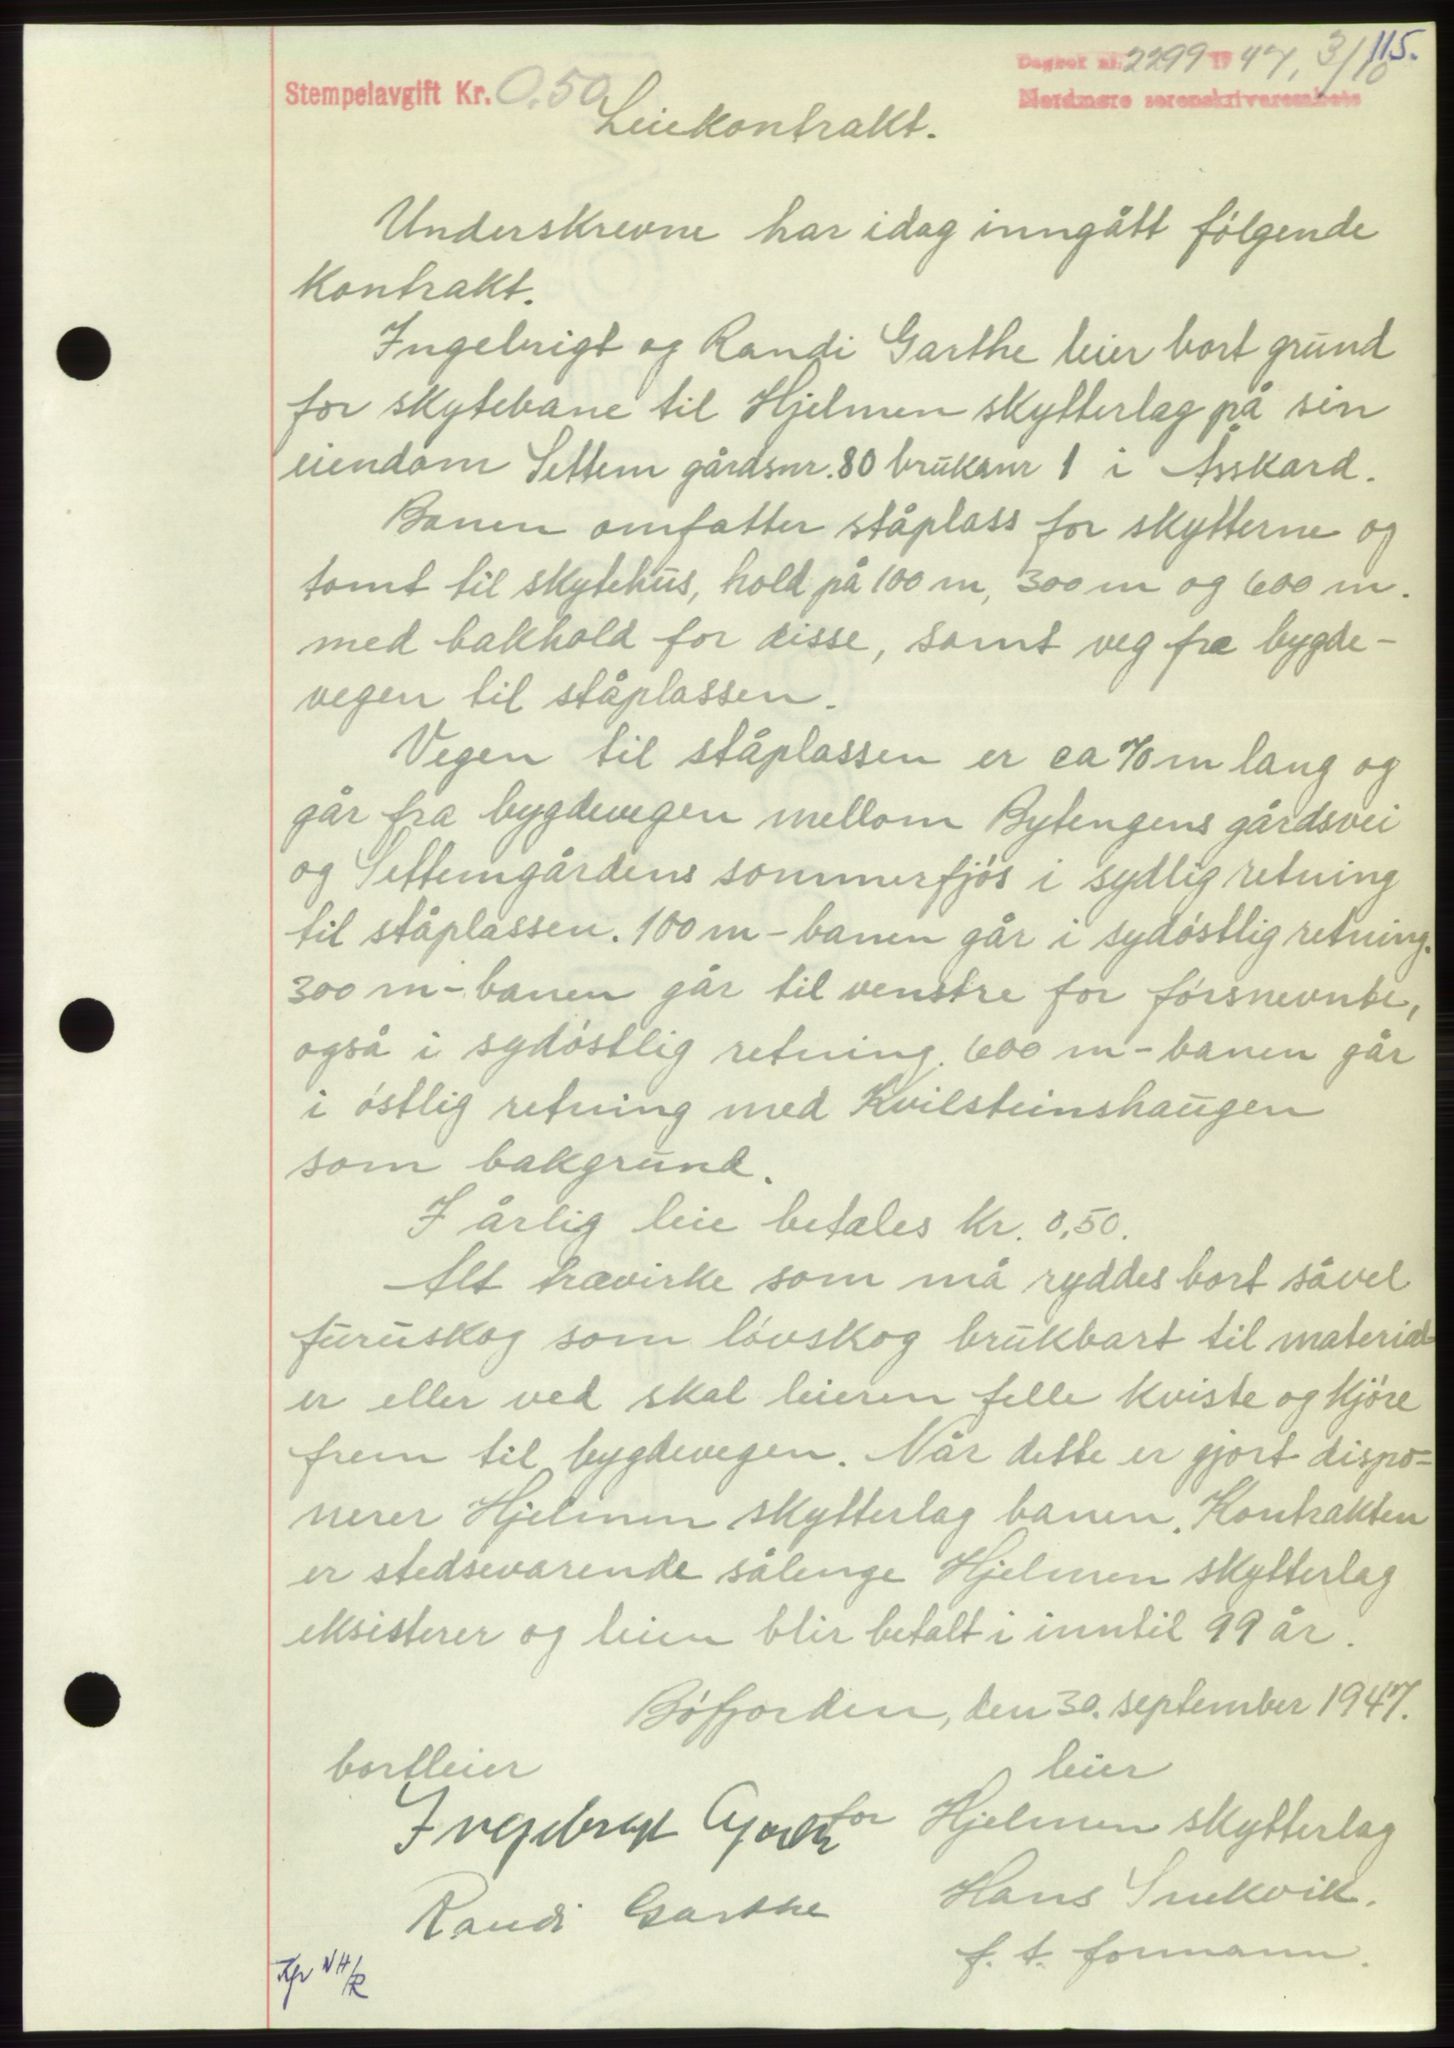 115.
Stempelavgift Kr. 0.50
Dagbok nr. 2299 1947, 3/10
Nordmøre sorenskriverembete
Leiekontrakt.
Underskrevne har idag inngått følgende
kontrakt.
Ingebrigt og Randi Garthe leier bort grund
for skytebane til Hjelmen skytterlag på sin
eiendom Settem gårdsnr. 80 bruksnr 1 i Åsskard.
Banen omfatter ståplass for skytterne og
tomt til skytehus, hold på 100 m, 300 m og 600 m.
med bakhold for disse, samt veg fra bygde-
vegen til ståplassen.
Vegen til ståplassen er ca 70 m lang og
går fra bygdevegen mellom Bytengens gårdsvei
og Settemgårdens sommerfjøs i sydlig retning
til ståplassen. 100 m-banen går i sydøstlig retning.
300 m-banen går til venstre for førsnevnte,
også i sydøstlig retning. 600 m-banen går
i østlig retning med Kvilsteinshaugen
som bakgrund.
I årlig leie betales kr. 0,50.
Alt trævirke som må ryddes bort såvel
furuskog som løvskog brukbart til material-
er eller ved skal leieren felle kviste og kjøre
frem til bygdevegen. Når dette er gjort dispo=
nerer Hjelmen skytterlag banen. Kontrakten
er stedsevarende sålenge Hjelmen skytterlag
eksisterer og leien blir betalt i inntil 99 år.
Bøfjorden, den 30. september 1947.
bortleier leier
Ingebrigt Garthe for Hjelmen skytterlag
Randi Garthe Hans Snekvik.
f. t. formann.